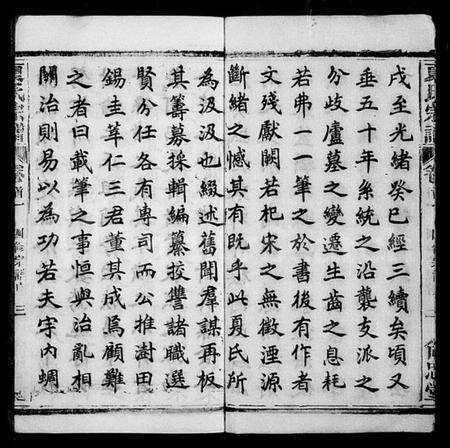 戌至光緒癸巳經三續矣頃又
垂五十年系統之沿襲支派之
分歧廬墓之變遷生齒之息耗
若弗一一筆之於書後有作者
文殘獻闕若杞宋之無徵湮源
斷緒之憾其有既乎此夏氏所
為汲汲也綴述舊聞羣謀再板
其籌募採輯編纂挍讐諸職選
賢分任各有專司而公推澍田
錫圭萃仁三君董其成焉顧難
之者曰載筆之事恒與治亂相
關治則易以為功若夫宇內蜩
夏氏宗譜